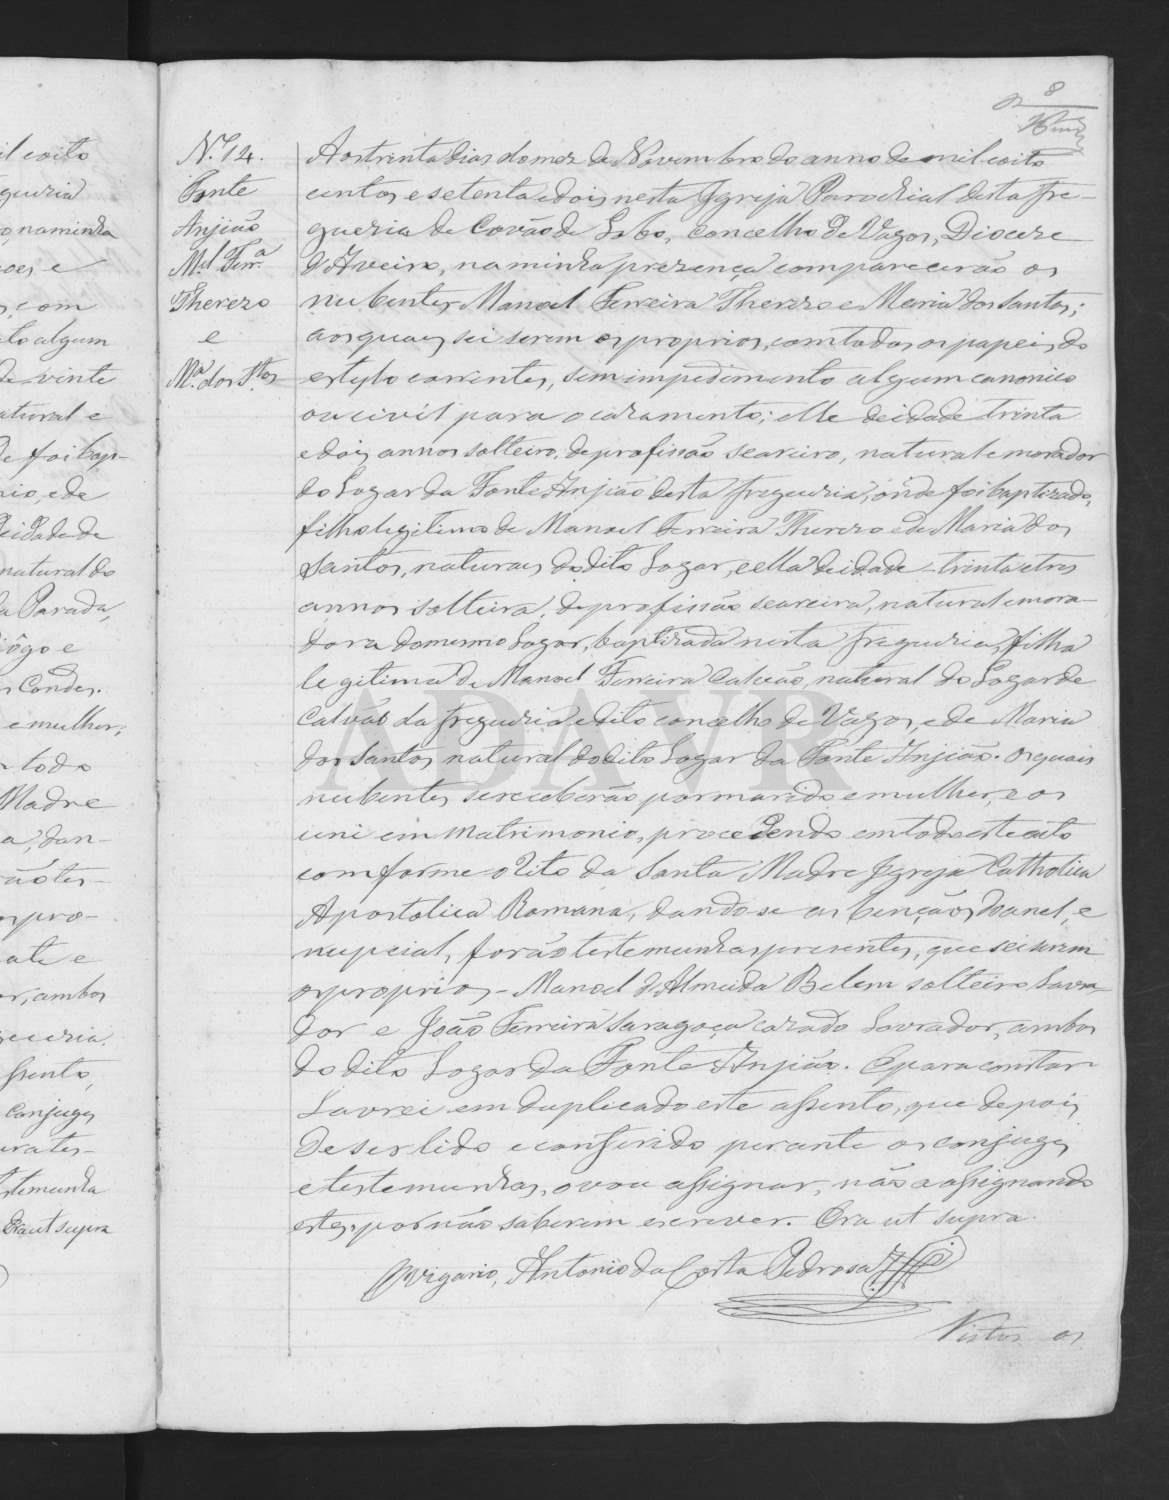 8
N.º 14.
Fonte
Anjião
M.el Ferr.ª
Therezo
e
M.ª dos S.tos
Aos trinta dias do mez de Novembro do anno de mil e oito
centos e setenta e dois nesta Igreja Parochial desta fre-
guezia de Covão de Lobo, concelho de Vagos, Diocese
d'Aveiro, na minha prezença comparecerão os
nubentes Manoel Ferreira Therezo e Maria dos Santos;
aos quaes sei serem os proprios, com todos os papeis do
estylo correntes, sem impedimento algum canonico
ou civil para o cazamento; elle de idade trinta
e dois annos solteiro, de profissão seareiro, natural e morador
do Lugar da Fonte Anjião desta freguezia, onde foi baptizado,
filho legitimo de Manoel Ferreira Therezo e de Maria dos
Santos, naturaes do dito Logar, e ella de idade trinta e tres
annos solteira, de profissão seareira, natural e mora-
dora do mesmo Logar, baptizada nesta freguezia, filha
legitima de Manoel Ferreira Calvão, natural do Logar de
Calvão da freguezia e dito concelho de Vagos, e de Maria
dos Santos natural do dito Logar da Fonte Anjião. Os quais
nubentes se receberão por marido e mulher, e os
uni em Matrimonio, procedendo em todo este acto
comforme o Rito da Santa Madre Igreja Catholica
Apostolica Romana, dando-se as bençãos do anel, e
nupcial, forão testemunhas presentes, que sei serem
os proprios - Manoel d'Almeida Belem solteiro Lavra-
dor e João Ferreira Saragoça cazado Lavrador, ambos
do dito Logar da Fonte Anjião. E para constar
Lavrei em duplicado este assento, que depois
de ser lido e conferido perante os conjuges
e testemunhas, o vou assignar, não o assignando
estes por não saberem escrever. Era ut supra.
O vigario, Antonio da Costa Pedrosa
Vistos os
ADAVR
il e oito
guezia
o, na minha
ões e
s, com
to algum
de vinte
atural e
de foi bap-
rio, e de
de idade de
natural do
da Parada,
iôgo e
s Condes.
e mulher,
todo
Madre
a, dan-
rão tes-
s pro-
ate e
or, ambos
guezia.
ssento,
conjuges
stemunha
Era ut supra